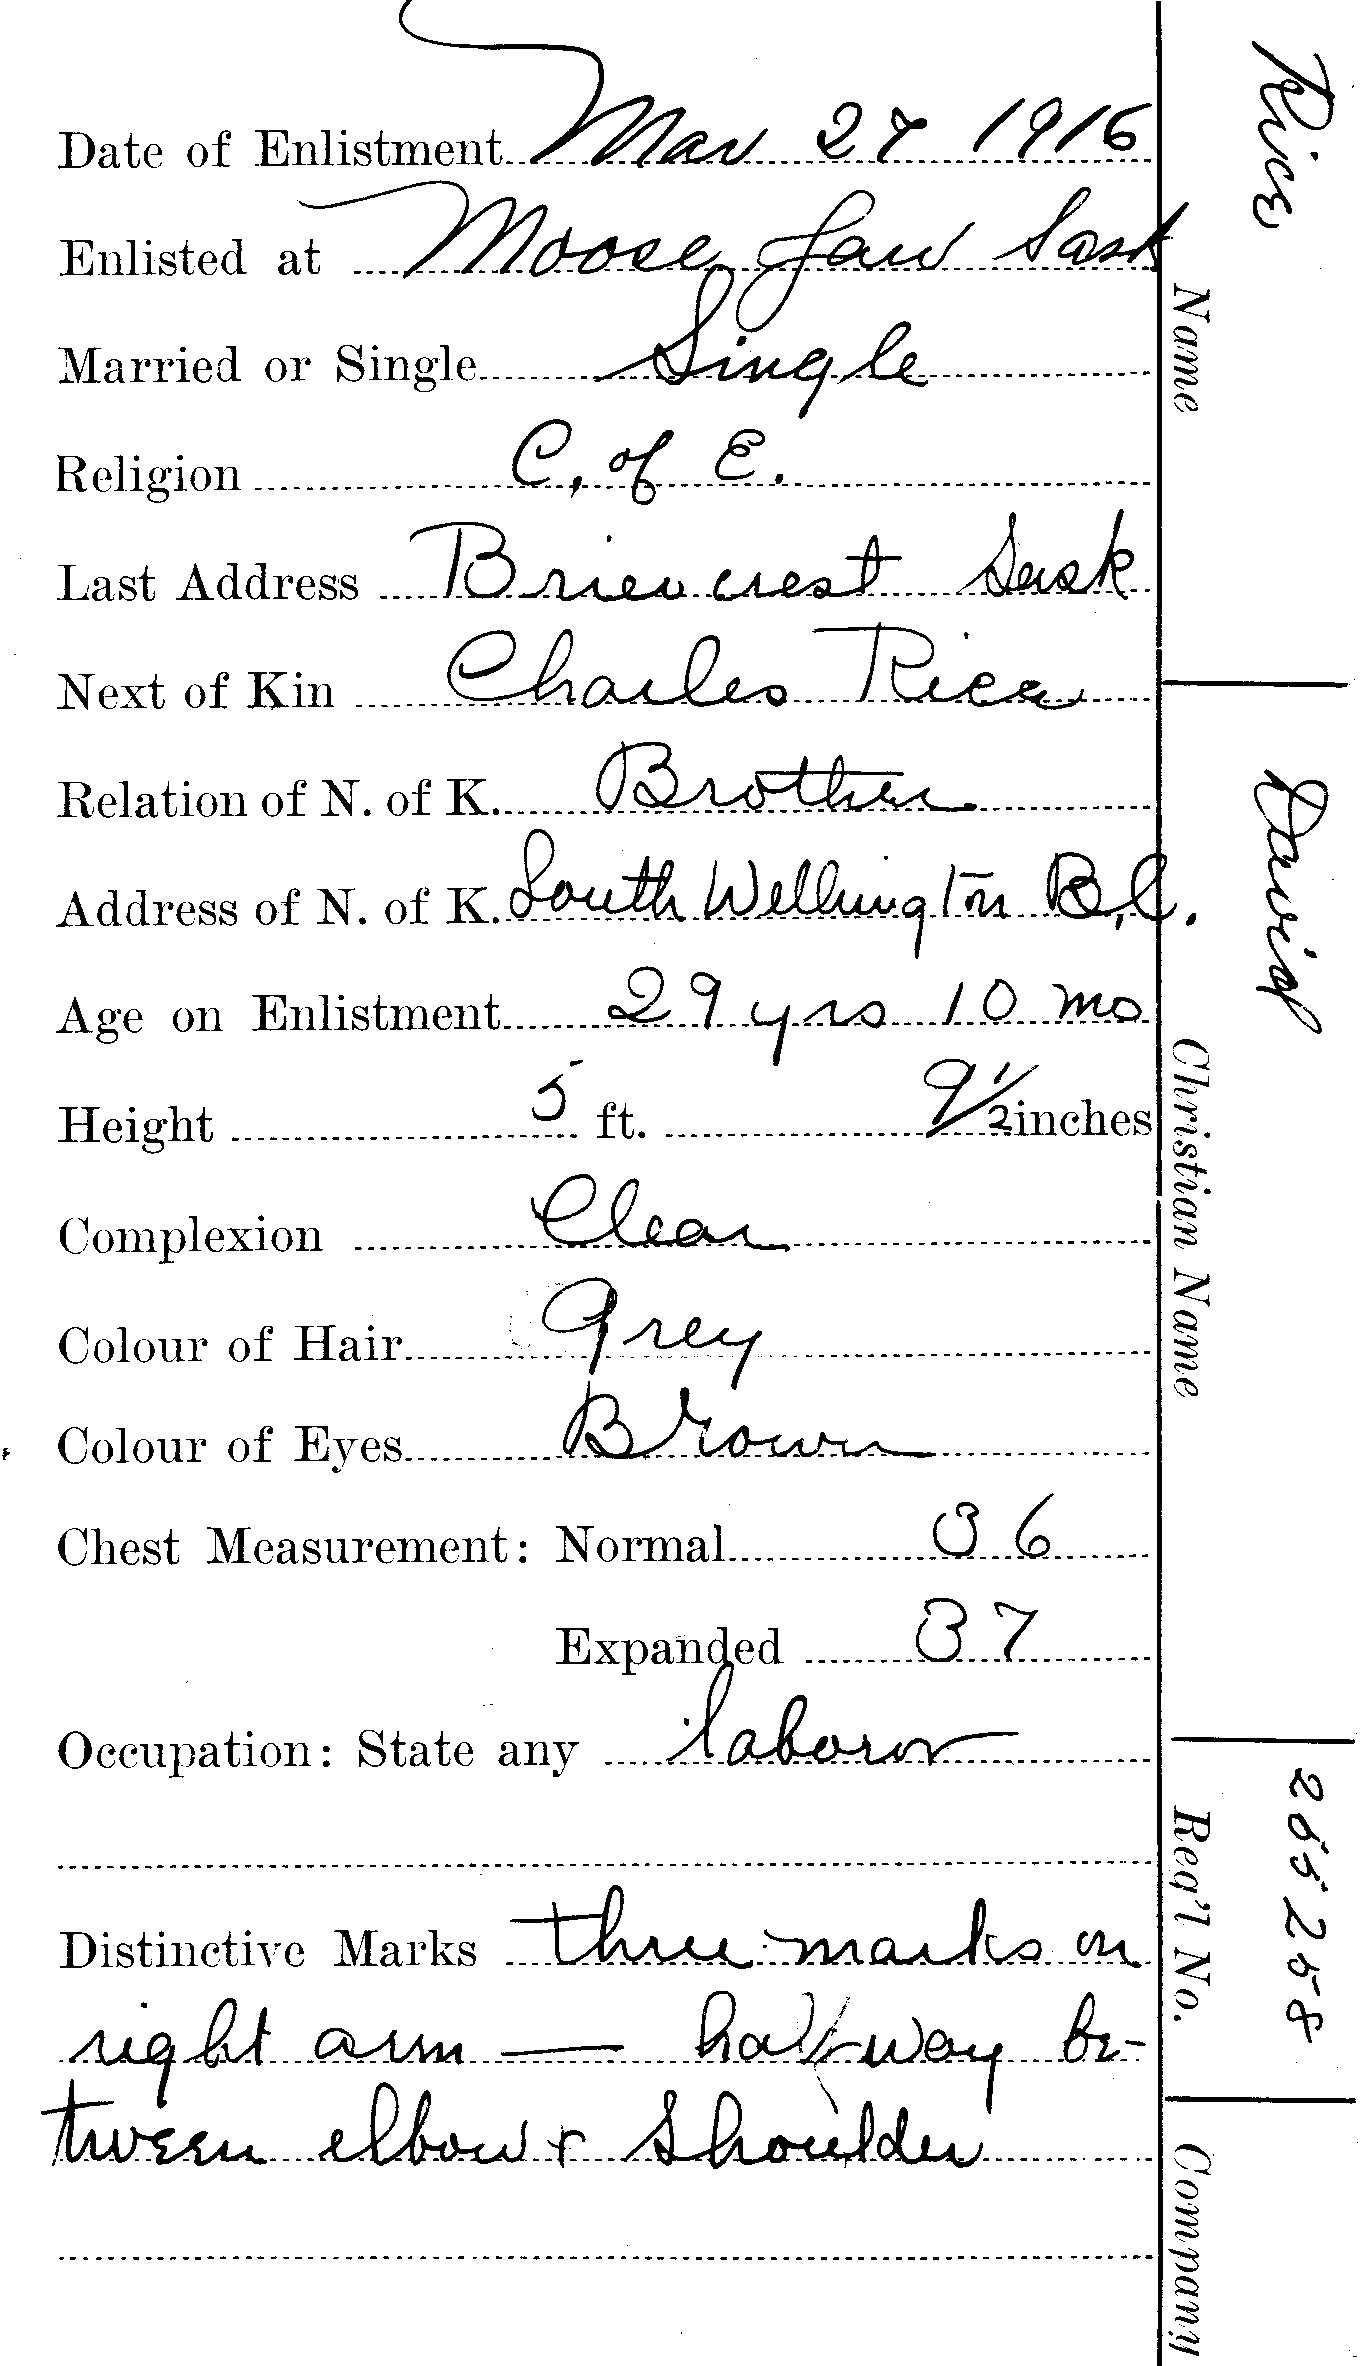 Date of Enlistment Mar 27 1916
Enlisted at Moose Jaw Sask
Married or Single Single
Religion C. of E.
Last Address Briercrest Sask
Next of Kin Charles Rice
Relation of N. of K. Brother
Address of N. of K. South Wellington B.C.
Age on Enlistment 29 yrs 10 mo
Height 5 ft. 9 1/2 inches
Complexion Clear
Colour of Hair Grey
Colour of Eyes Brown
Chest Measurement: Normal 36
Expanded 37
Occupation: State any laborer
Distinctive Marks three marks on
right arm — halfway be-
tween elbow & Shoulder
Rice
Name
David
Christian Name
255258
Reg'l No.
Company